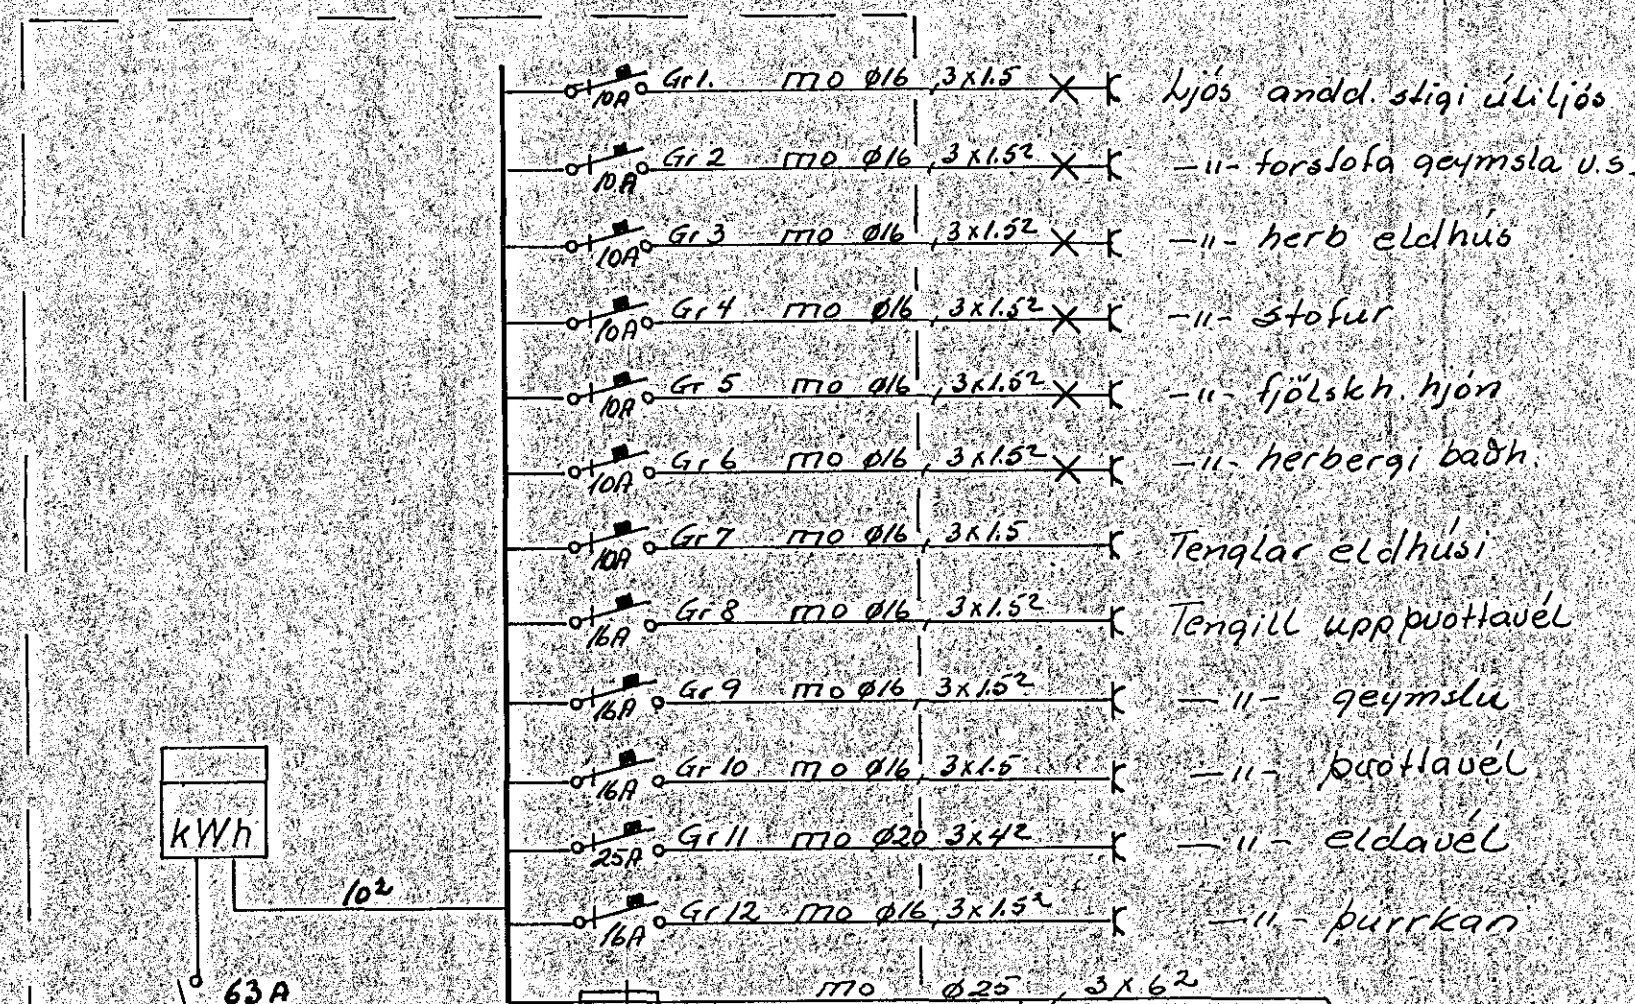 Gr 1. mo ø16 3x1.5 Ljós andd. stigi útiljós
10A
Gr 2 mo ø16 3x1.5² -"- forstofa geymsla u.s.
10A
Gr 3 mo ø16 3x1.5² -"- herb eldhús
10A
Gr 4 mo ø16 3x1.5² -"- stofur
10A
Gr 5 mo ø16 3x1.5² -"- fjölskh. hjón
10A
Gr 6 mo ø16 3x1.5² -"- herbergi baðh.
10A
Gr 7 mo ø16 3x1.5 Tenglar eldhúsi
10A
Gr 8 mo ø16 3x1.5² Tengill uppþvottavél
16A
Gr 9 mo ø16 3x1.5² -"- geymslu
16A
Gr 10 mo ø16 3x1.5 -"- þvottavél
16A
kWh
Gr 11 mo ø20 3x4² -"- eldavél
25A
10²
Gr 12 mo ø16 3x1.5² -"- þurrkan
16A
63A
mo ø25 3x6²